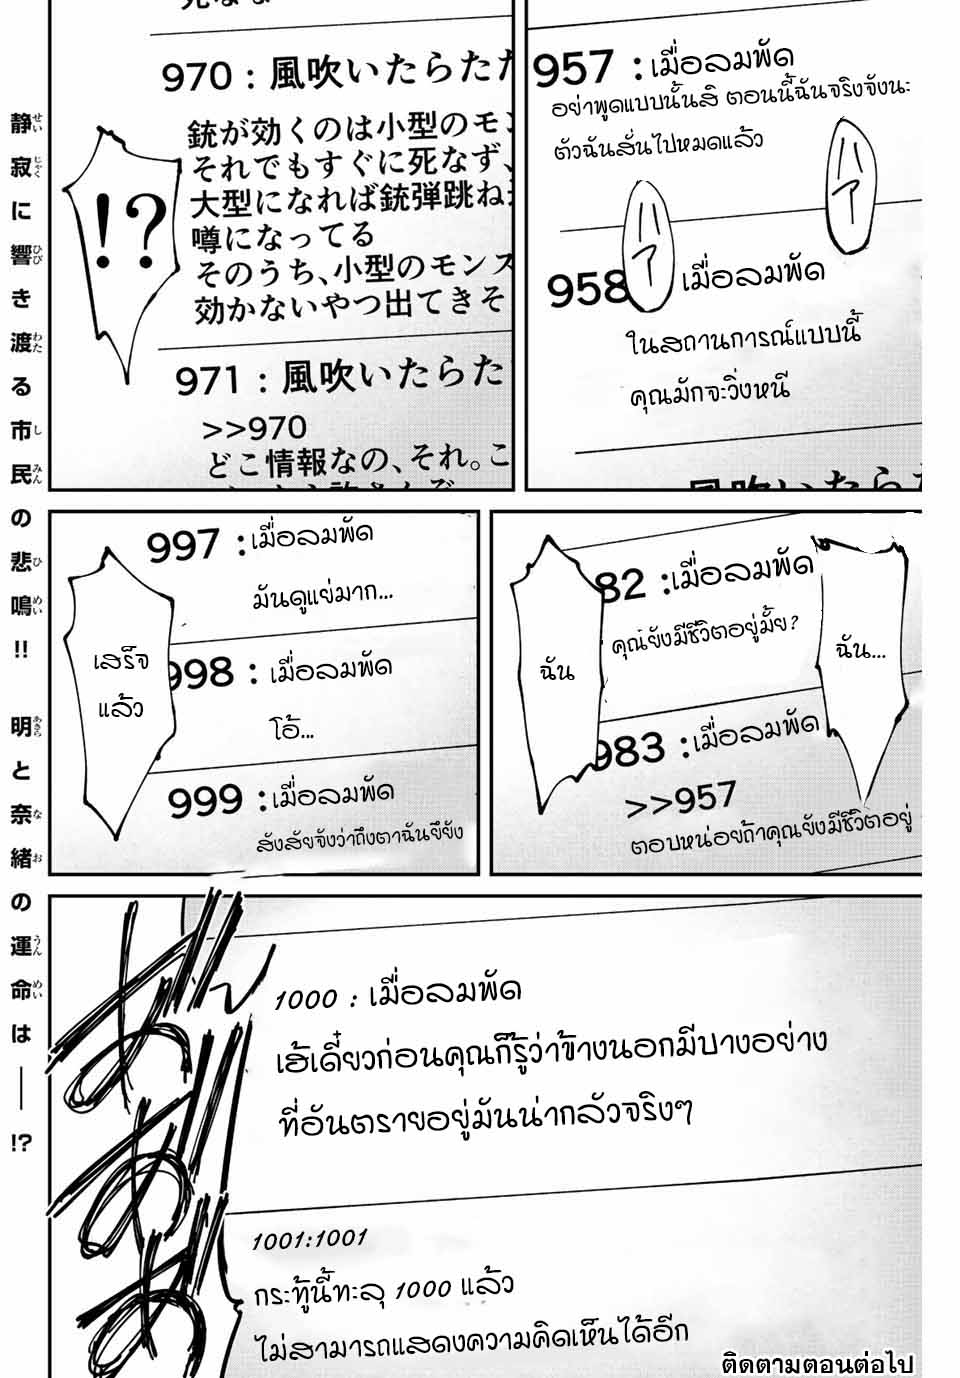 957 : เมื่อลมพัด
อย่าพูดแบบนั้นสิ ตอนนี้ฉันจริงจังนะ
ตัวฉันสั่นไปหมดแล้ว
ハァ
ハァ
958 เมื่อลมพัด
ในสถานการณ์แบบนี้
คุณมักจะวิ่งหนี
970 : 風吹いたらただ
銃が効くのは小型のモン
それでもすぐに死なず、
大型になれば銃弾跳ね
噂になってる
そのうち、小型のモンス
効かないやつ出てきそ
!?
971 : 風吹いたらた
>>970
どこ情報なの、それ。こ
82 : เมื่อลมพัด
คุณยังมีชีวิตอยู่มั้ย?
ฉัน...
ฉัน
983 : เมื่อลมพัด
>>957
ตอบหน่อยถ้าคุณยังมีชีวิตอยู่
997 : เมื่อลมพัด
มันดูแย่มาก...
998 : เมื่อลมพัด
โอ้...
เสร็จ
แล้ว
999 : เมื่อลมพัด
สังสัยจังว่าถึงตาฉันยึยัง
1000 : เมื่อลมพัด
เฮ้เดี๋ยวก่อนคุณก็รู้ว่าข้างนอกมีบางอย่าง
ที่อันตรายอยู่มันน่ากลัวจริงๆ
1001:1001
กระทู้นี้ทะลุ 1000 แล้ว
ไม่สามารถแสดงความคิดเห็นได้อีก
静寂に響き渡る市民の悲鳴!! 明と奈緒の運命は――!?
ติดตามตอนต่อไป